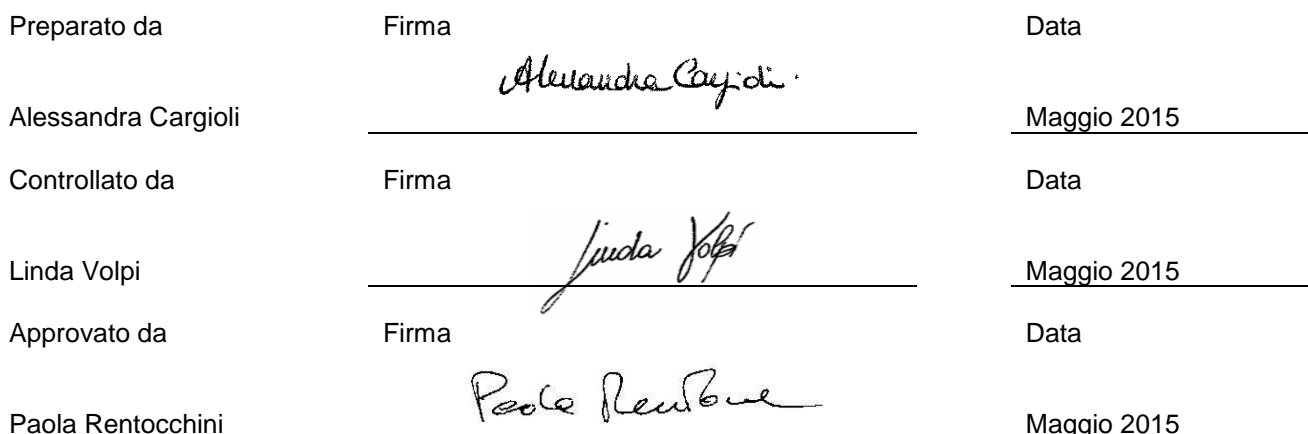 Preparato da Firma Data
Alessandra Cargioli
Alessandra Cargioli Maggio 2015
Controllato da Firma Data
Linda Volpi
Linda Volpi Maggio 2015
Approvato da Firma Data
Paola
Paola Rentocchini Maggio 2015